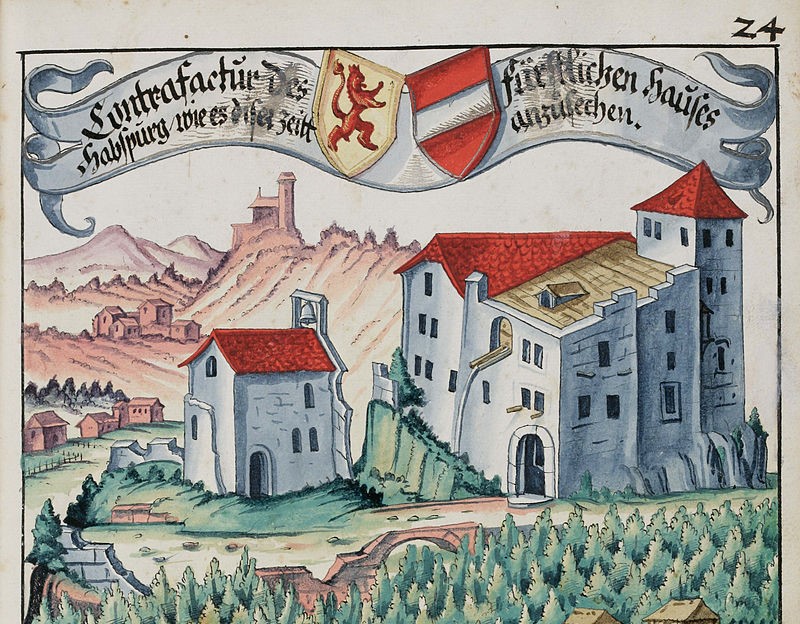 24
Contrafactur des fürstlichen Hauses
Habspurg wie es diser zeitt anzusechen.